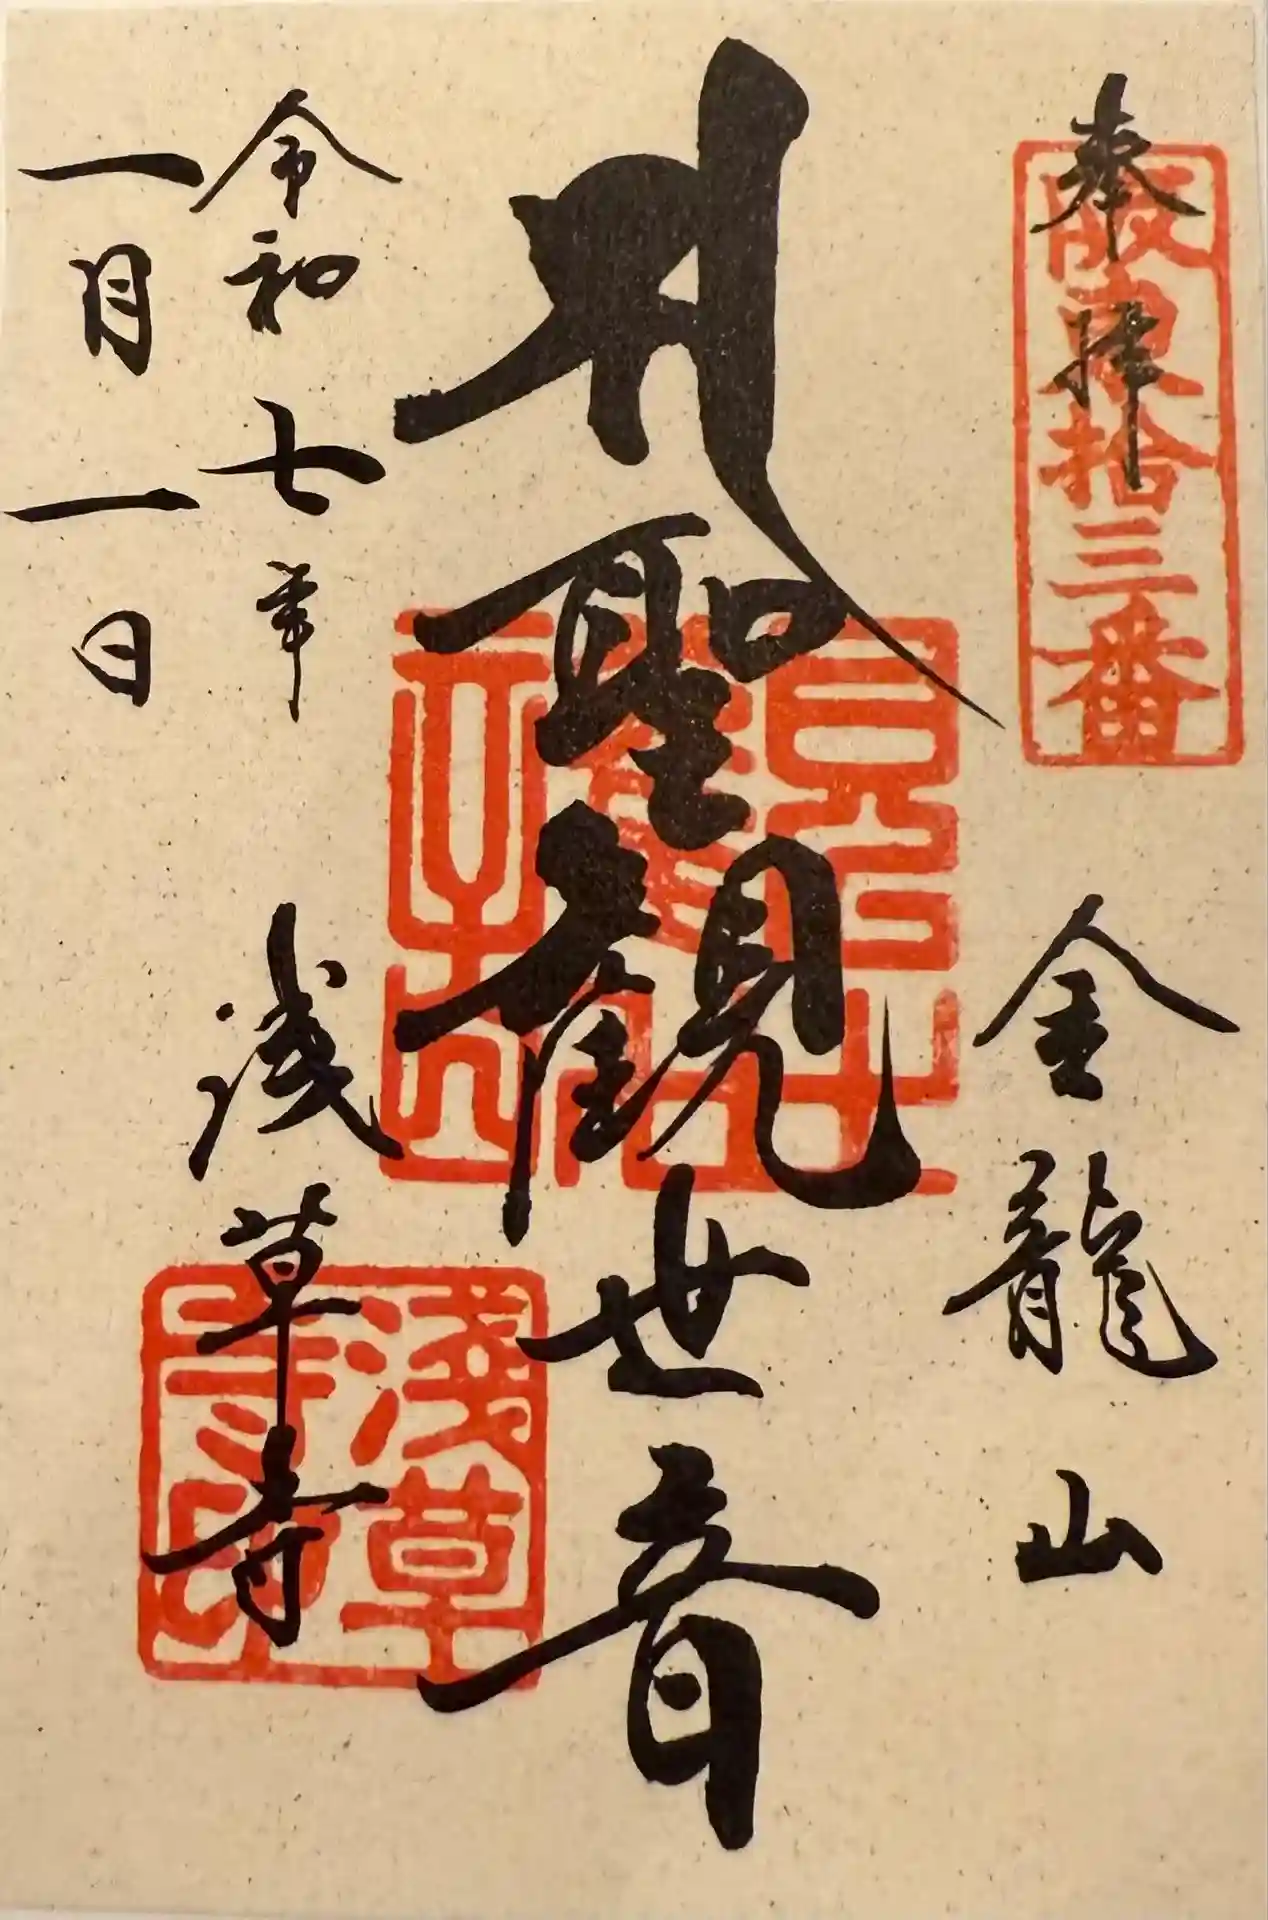 奉拝
阪東拾三番
金龍山
聖観世音
令和七年
一月一日
浅草寺
淺草
寺印